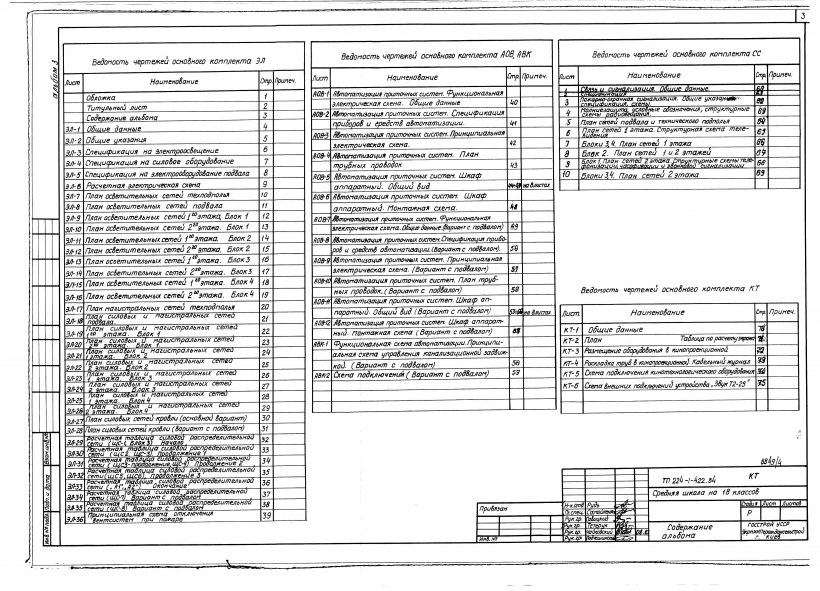 3
альбом 3
Ведомость чертежей основного комплекта ЭЛ
Лист Наименование Стр. Примеч.
Обложка 1
Титульный лист 2
Содержание альбома 3
ЭЛ-1 Общие данные 4
ЭЛ-2 Общие указания 5
ЭЛ-3 Спецификация на электроосвещение 6
ЭЛ-4 Спецификация на силовое оборудование 7
ЭЛ-5 Спецификация на электрооборудование подвала 8
ЭЛ-6 Расчетная электрическая схема 9
ЭЛ-7 План осветительных сетей техподполья 10
ЭЛ-8 План осветительных сетей подвала 11
ЭЛ-9 План осветительных сетей 1го этажа, Блок 1 12
ЭЛ-10 План осветительных сетей 2го этажа. Блок 1 13
ЭЛ-11 План осветительных сетей 1го этажа. Блок 2 14
ЭЛ-12 План осветительных сетей 2го этажа. Блок 2 15
ЭЛ-13 План осветительных сетей 1го этажа. 16
ЭЛ-14 План осветительных сетей 2го этажа. Блок 3 17
ЭЛ-15 План осветительных сетей 1го этажа. Блок 4 18
ЭЛ-16 План осветительных сетей 2го этажа. Блок 4 19
ЭЛ-17 План магистральных сетей техподполья 20
ЭЛ-18 План силовых и магистральных сетей подвала. 21
ЭЛ-19 План силовых и магистральных сетей 1го этажа. Блок 1 22
ЭЛ-20 План силовых и магистральных сетей 2го этажа. Блок 1 23
ЭЛ-21 План силовых и магистральных сетей 1 этажа. Блок 2 24
ЭЛ-22 План силовых и магистральных сетей 2 этажа. Блок 2 25
ЭЛ-23 План силовых и магистральных сетей 1 этажа. Блок 3 26
ЭЛ-24 План силовых и магистральных сетей 2 этажа. Блок 3 27
ЭЛ-25 План силовых и магистральных сетей 1 этажа. Блок 4 28
ЭЛ-26 План силовых и магистральных сетей 2 этажа. Блок 4 29
ЭЛ-27 План силовых сетей кровли (основной вариант) 30
ЭЛ-28 План силовых сетей кровли (вариант с подвалом) 31
ЭЛ-29 Расчетная таблица силовой распределительной сети (ЩС-1, Блок 3) Начало 32
ЭЛ-30 Расчетная таблица силовой распределительной сети (ЩС2, ЩС-3) Продолжение 1 33
ЭЛ-31 Расчетная таблица силовой распределительной сети (ЩС3-продолжение, ЩС-4) Продолжение 2 34
ЭЛ-32 Расчетная таблица силовой распределительной сети (ЩС5, ЩС6), Продолжение 3 35
ЭЛ-33 Расчетная таблица силовой распределительной сети Окончание 36
ЭЛ-34 Расчетная таблица силовой распределительной сети (ЩС-7) Вариант с подвалом 37
ЭЛ-35 Расчетная таблица силовой распределительной сети (ЩС-8) Вариант с подвалом 38
ЭЛ-36 Принципиальная схема отключения вентсистем при пожаре 39
Ведомость чертежей основного комплекта АОВ, АВК
Лист Наименование Стр. Примеч.
АОВ-1 Автоматизация приточных систем. Функциональная
электрическая схема. Общие данные 40
АОВ-2 Автоматизация приточных систем. Спецификация
приборов и средств автоматизации. 41
АОВ-3 Автоматизация приточных систем. Принципиальная
электрическая схема. 42
АОВ-4 Автоматизация приточных систем. План
трубных проводок 43
АОВ-5 Автоматизация приточных систем. Шкаф
аппаратный. Общий вид на 8 листах
АОВ-6 Автоматизация приточных систем. Шкаф
аппаратный. Монтажная схема. 48
АОВ-7 Автоматизация приточных систем. Функциональная
электрическая схема. Общие данные (вариант с подвалом) 49
АОВ-8 Автоматизация приточных систем. Спецификация прибо-
ров и средств автоматизации. (Вариант с подвалом). 50
АОВ-9 Автоматизация приточных систем. Принципиальная
электрическая схема (Вариант с подвалом) 51
АОВ-10 Автоматизация приточных систем. План труб-
ных проводок. (Вариант с подвалом)
АОВ-11 Автоматизация приточных систем. Шкаф ап-
паратный. Общий вид (Вариант с подвалом) на 8 листах
АОВ-12 Автоматизация приточных систем. Шкаф аппарат-
ный. Монтажная схема (Вариант с подвалом)
АВК-1 Функциональная схема автоматизации. Принципи-
альная схема управления канализационной задвиж-
кой. (Вариант с подвалом)
АВК-2 Схема подключения (Вариант с подвалом) 59
Ведомость чертежей основного комплекта СС
Лист Наименование Стр. Примеч.
1 Связь и сигнализация. Общие данные 60
2 Спецификация
3 Пожарно-охранная сигнализация. Общие указания, спецификация, схемы.
4 условные обозначения, структурные схемы радиофикации.
5 План сетей подвала и технического подполья 64
6 План сетей 1 этажа. Структурная схема телевидения 65
7 Блоки 3,4. План сетей 1 этажа 66
8 Блок 2. План сетей 1 и 2 этажей 67
9 Блок 1 План сетей 2 этажа. Структурные схемы телефонизации, часофикации и звонковой сигнализации 68
10 Блоки 3,4. План сетей 2 этажа 69
Ведомость чертежей основного комплекта КТ
Лист Наименование Стр. Примеч.
КТ-1 Общие данные
КТ-2 План Таблица по расчету экрана
КТ-3 Размещение оборудования в кинопроекционной 72
КТ-4 Раскладка труб в кинопроекционной. Кабельный журнал 73
КТ-5 Схема подключения кинотехнологического оборудования 74
КТ-6 Схема внешних подключений устройства „Звук Т2-25" 75
8849/4
ТП 224-1-422.84 КТ
Средняя школа на 18 классов
Стадия Лист Листов
Р
Содержание
альбома
ГОССТРОЙ УССР
г. Киев
Привязан
Инв. №
Н.контр. Рудь
Гл. спец.
Рук. гр.
Рук. гр. Петерук
Рук. гр.
Рук. гр.